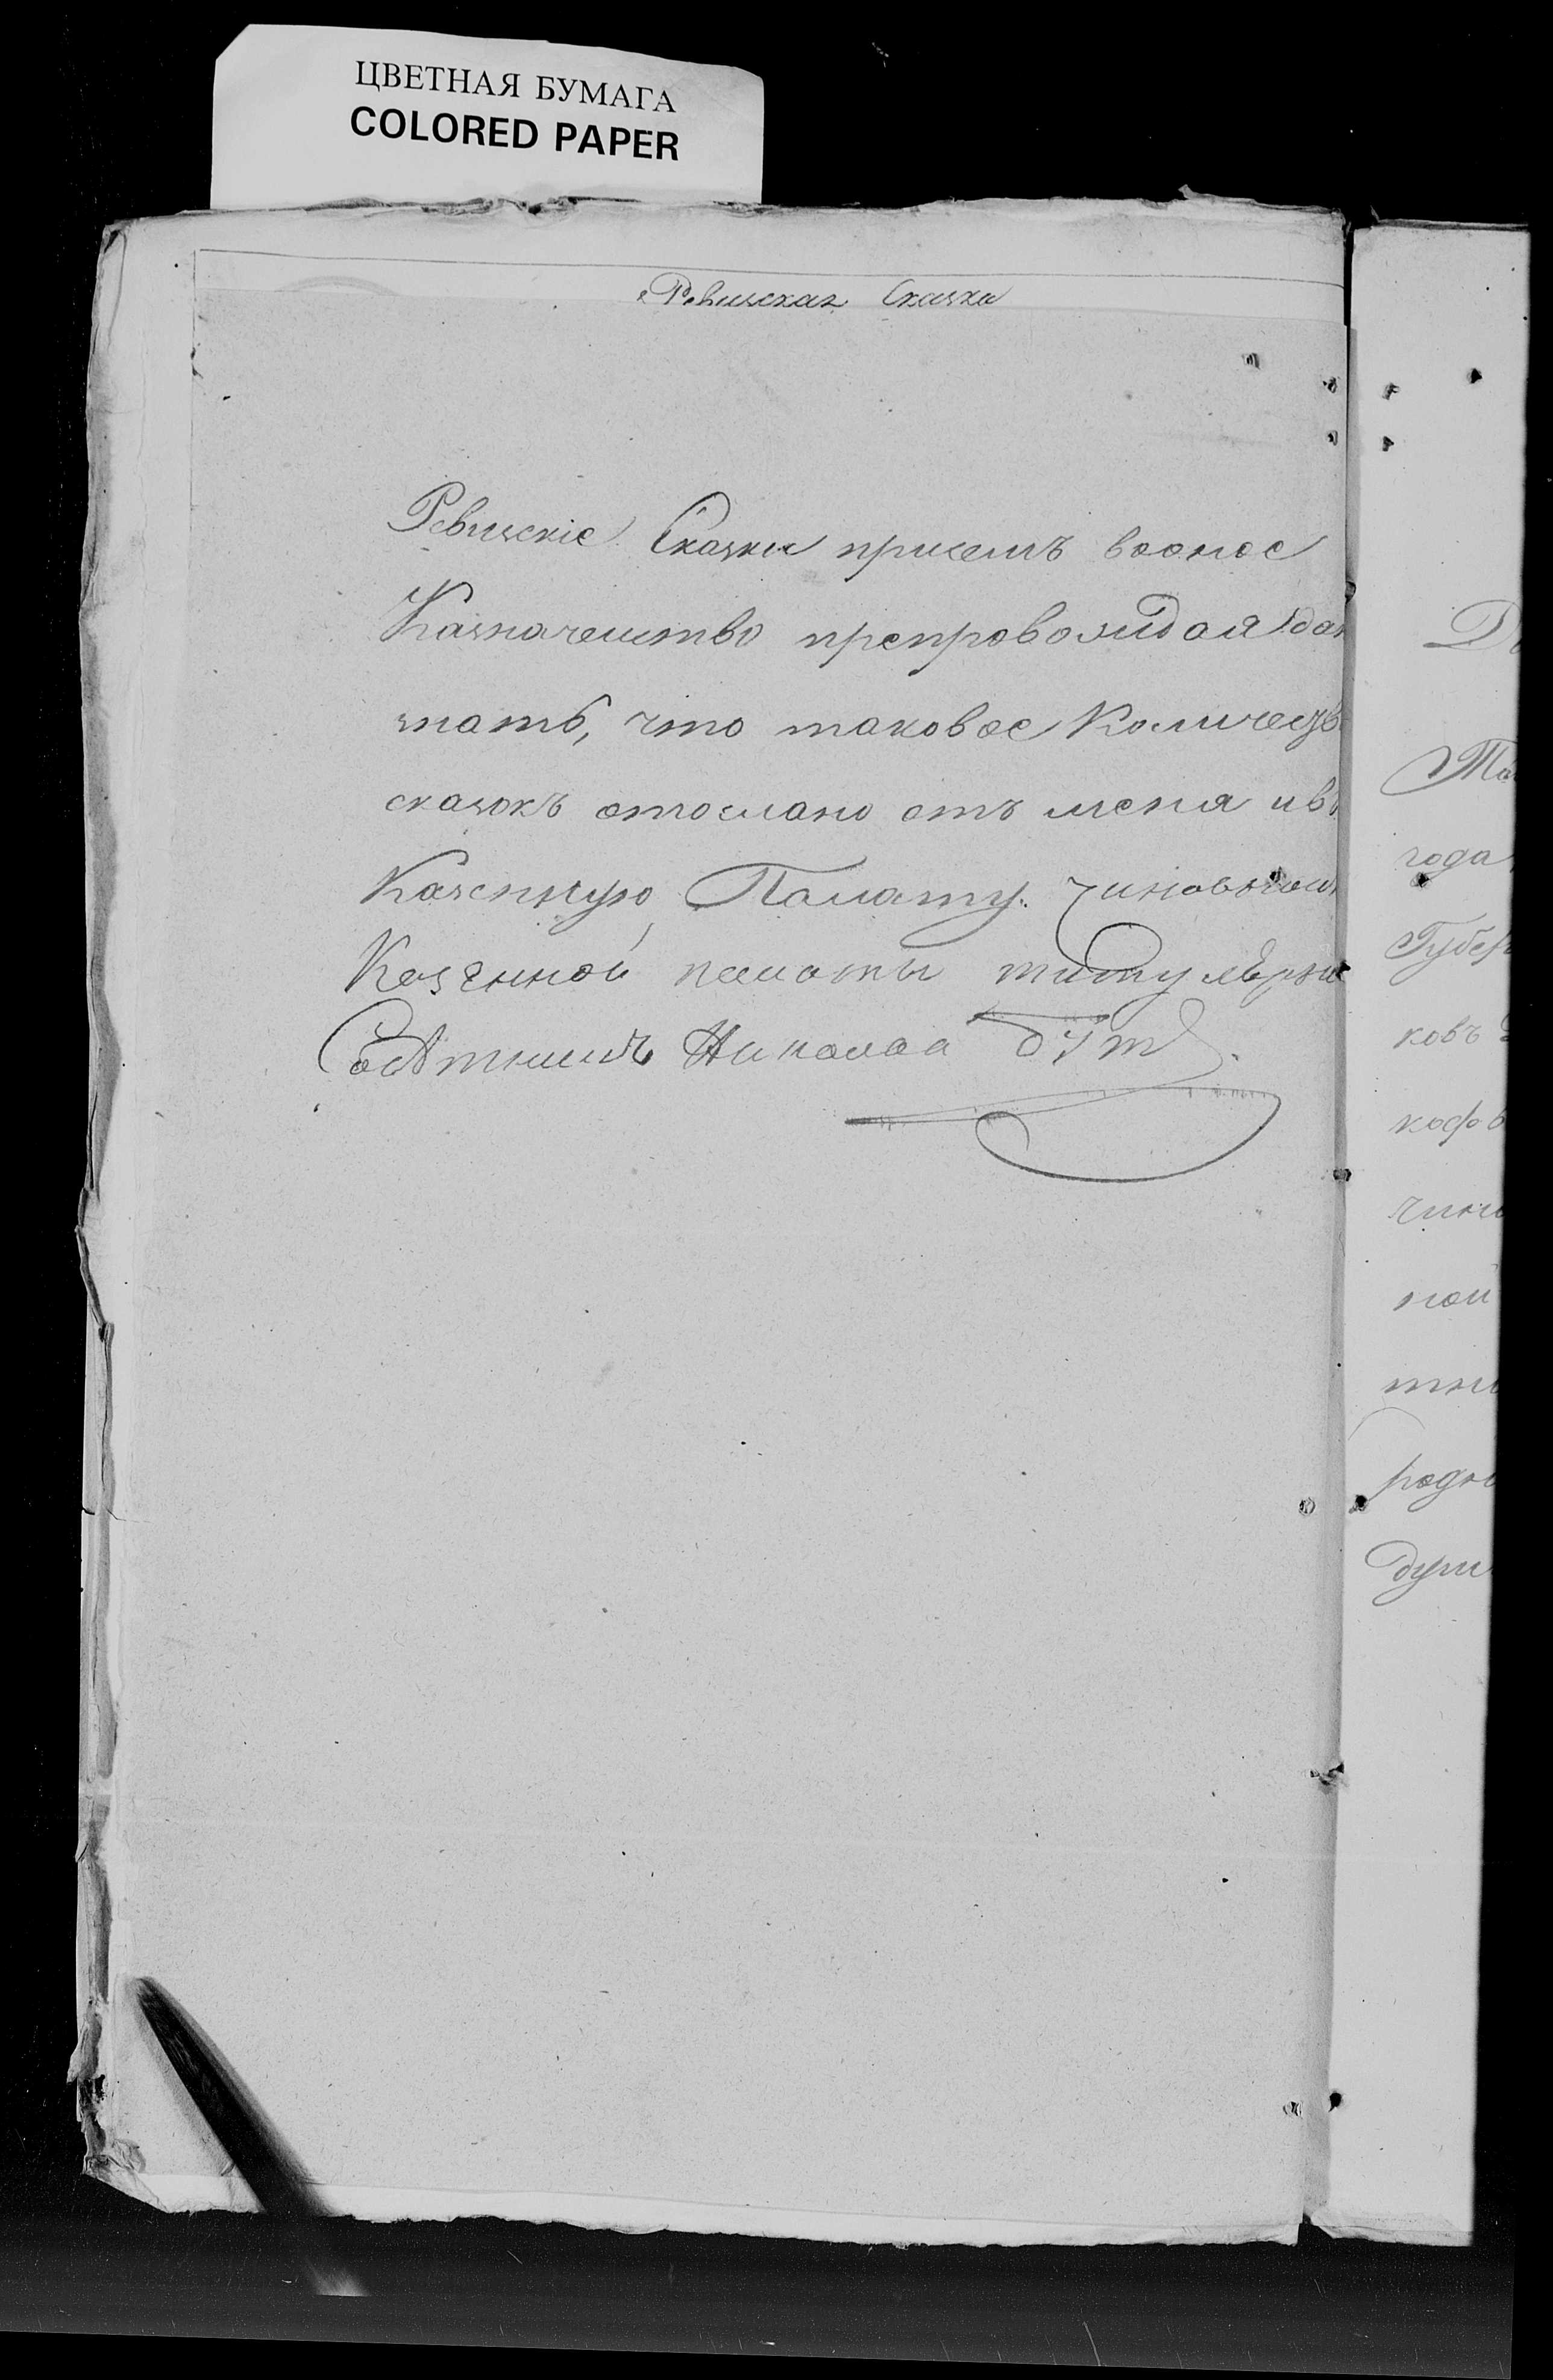 ЦВЕТНАЯ БУМАГА
COLORED PAPER
Ревизская Сказка
Ревизскіе Сказки при семъ вооное
Казначейство препровождая дан
знать, что таковое Количеств
сказокъ отослано отъ меня ивъ
Казенную Палату. Чиновником
Казенной палаты титулярны
Совѣтникъ Николай
Та
года
Губер
ковъ
чино
ной
тны
родн
душ